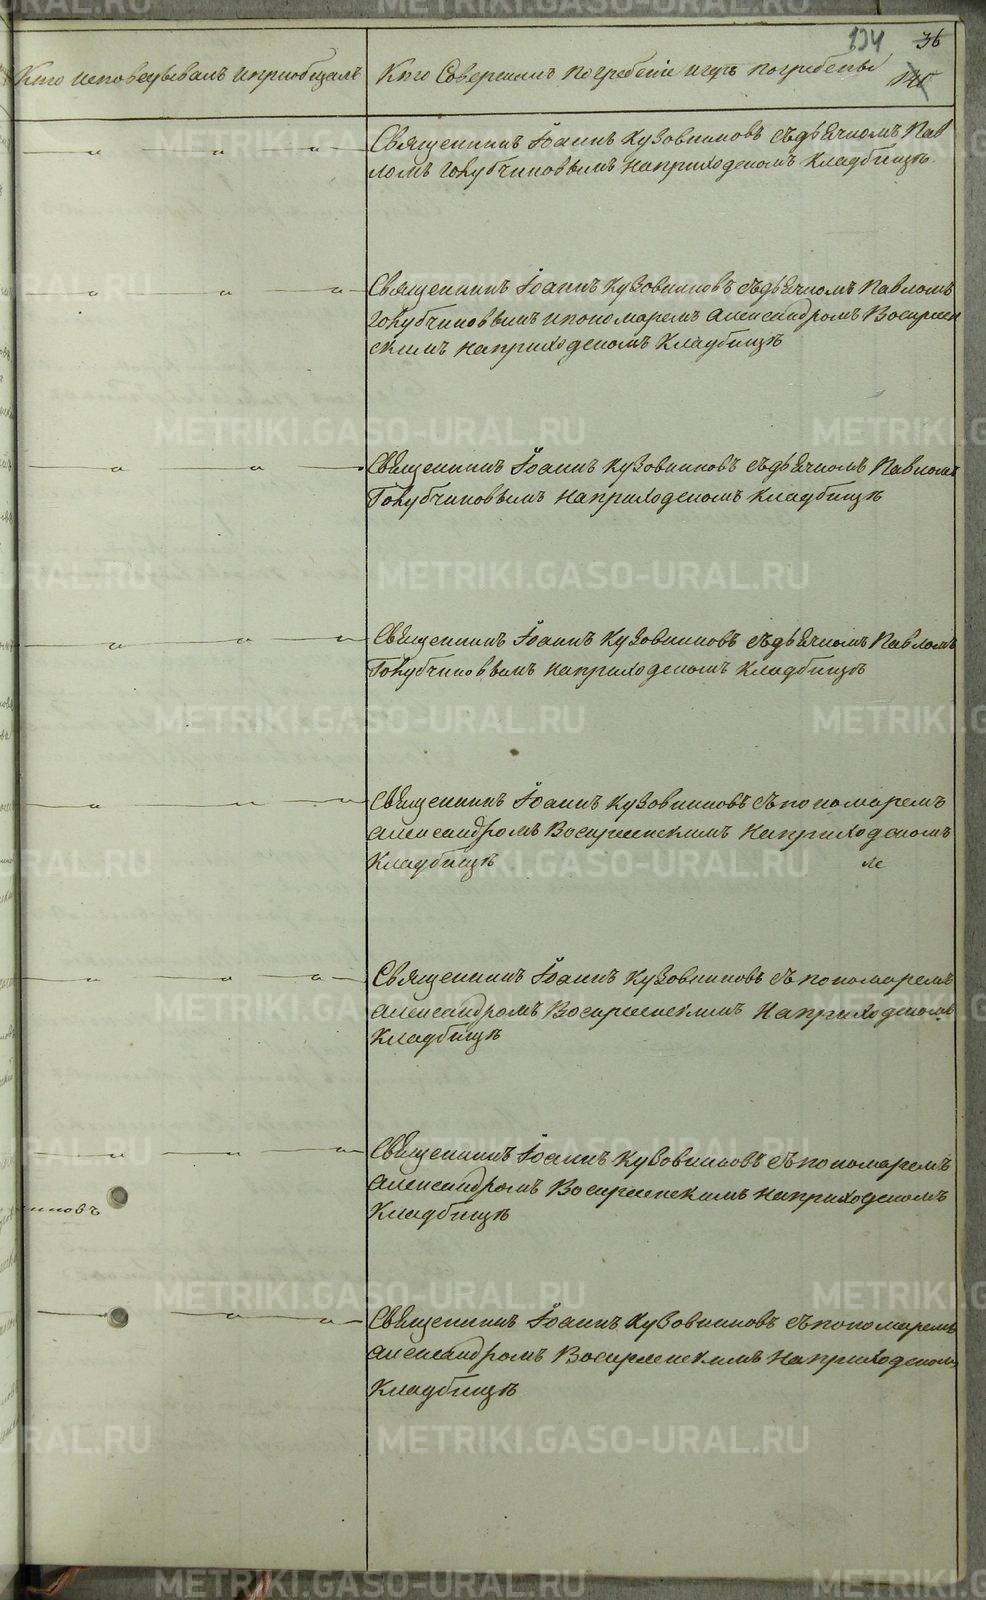 134 36
Кто исповедывалъ и приобщалъ
Кто Совершалъ погребеніе и гдѣ погребены
Священникъ Іоаннъ Кузовниковъ съ дьячкомъ Пав
ломъ Голубчиковымъ на приходскомъ кладбищѣ
Священникъ Іоаннъ Кузовниковъ съ дьячкомъ Павломъ
Голубчиковымъ и пономаремъ Александромъ Воскресен
скимъ на приходскомъ кладбищѣ
Священникъ Іоаннъ Кузовниковъ съ дьячкомъ Павломъ
Голубчиковымъ на приходскомъ кладбищѣ
Священникъ Іоаннъ Кузовниковъ съ дьячкомъ Павломъ
Голубчиковымъ на приходскомъ кладбищѣ
Священникъ Іоаннъ Кузовниковъ съ пономаремъ
Александромъ Воскресенскимъ на приходскомъ
Кладбищѣ
Священникъ Іоаннъ Кузовниковъ съ пономаремъ
Александромъ Воскресенскимъ на приходскомъ
Кладбищѣ
Священникъ Іоаннъ Кузовниковъ съ пономаремъ
Александромъ Воскресенскимъ на приходскомъ
Кладбищѣ
никовъ
Священникъ Іоаннъ Кузовниковъ съ пономаремъ
Александромъ Воскресенскимъ на приходскомъ
Кладбищѣ
METRIKI.GASO-URAL.RU